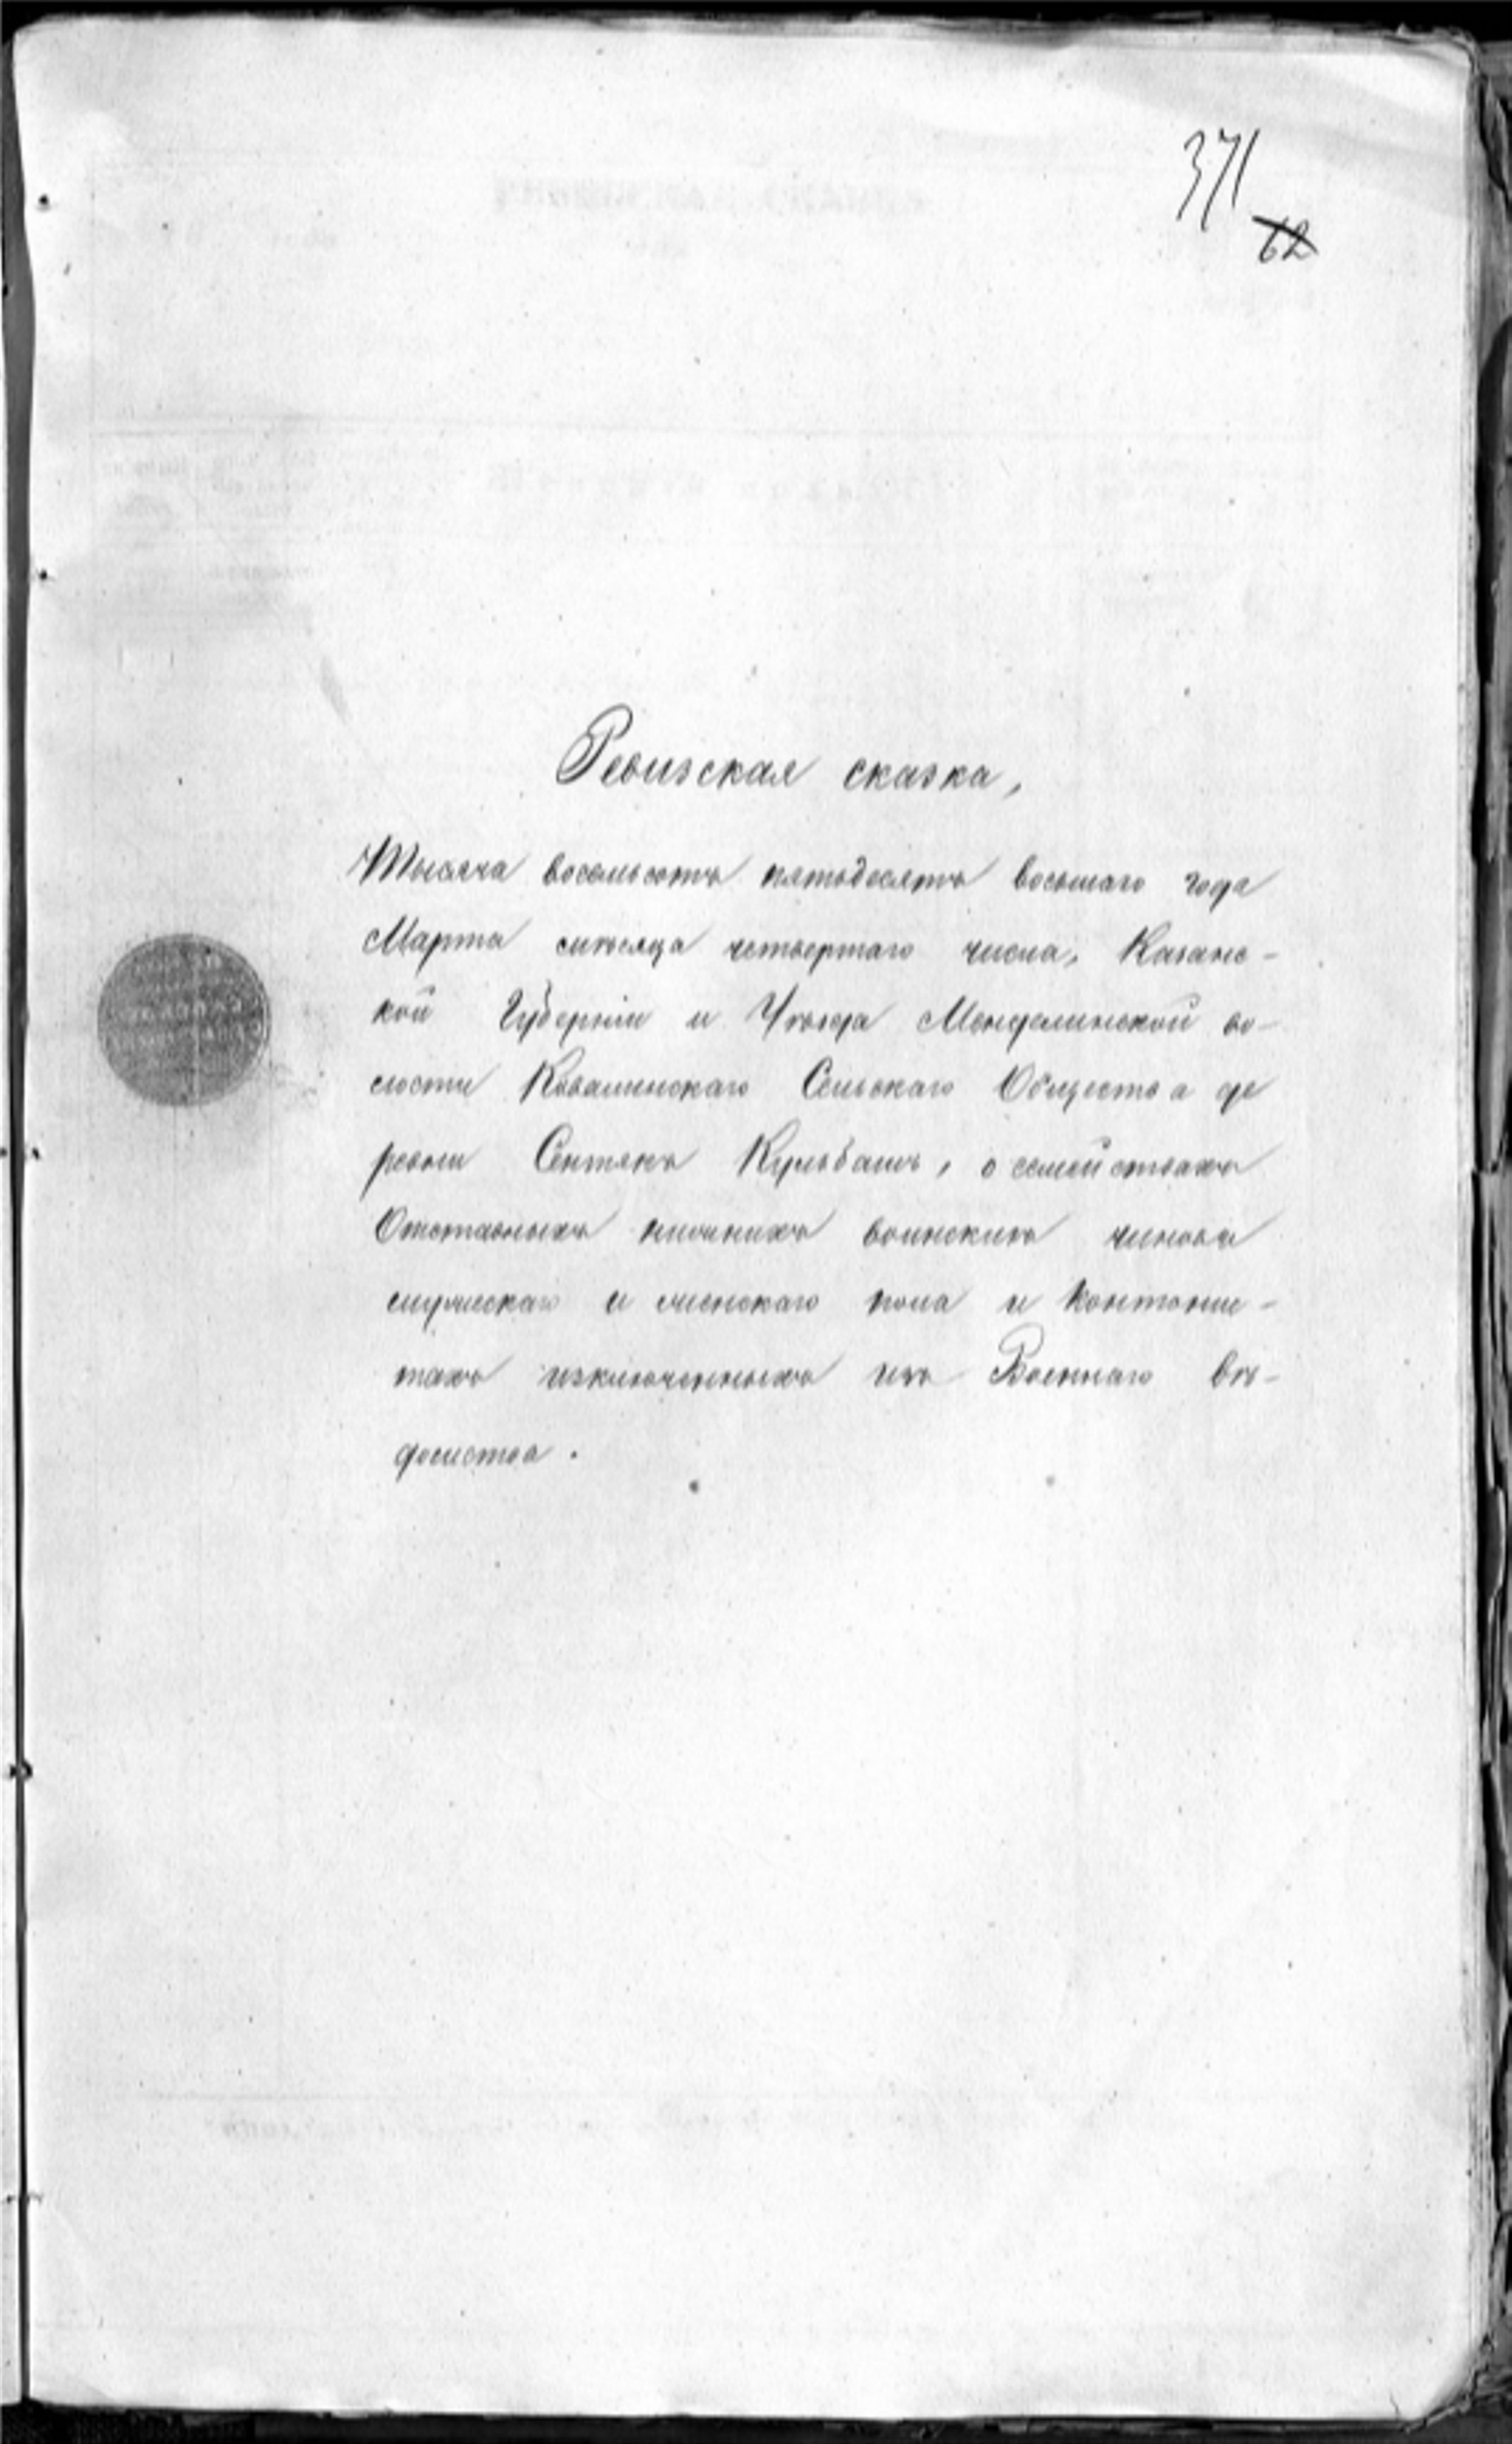 371
62
Ревизская сказка,
Тысяча восемьсотъ пятьдесятъ восьмаго года
Марта мѣсяца четвертаго числа, Казанс-
кой Губерніи и Уѣзда Менделинской во-
лости Ковалинскаго Сельскаго Общества де
ревни Сентякъ Кульбашъ, о семействахъ
Отставныхъ нижнихъ воинскихъ чиновъ
мужескаго и женскаго пола и контонис-
тахъ изключенныхъ изъ Военнаго вѣ-
домства.